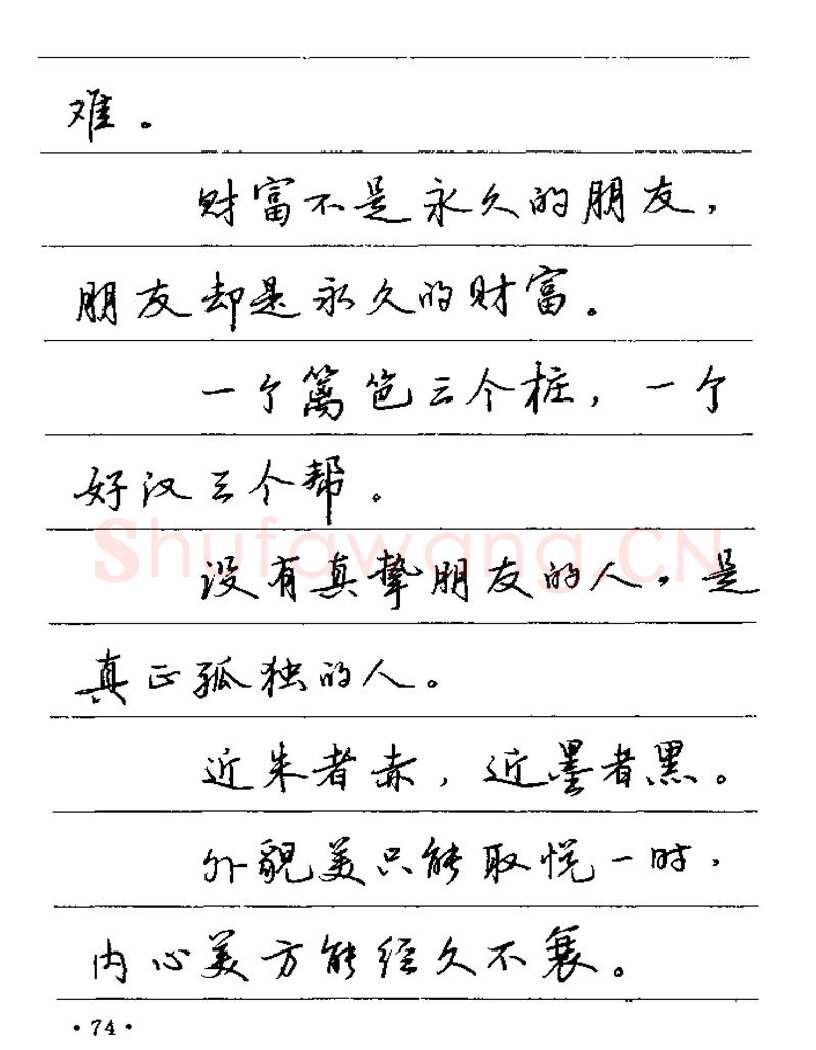 难。
财富不是永久的朋友，
朋友却是永久的财富。
一个篱笆三个桩，一个
好汉三个帮。
Shufawang.CN
没有真挚朋友的人，是
真正孤独的人。
近朱者赤，近墨者黑。
外貌美只能取悦一时，
内心美方能经久不衰。
·74·